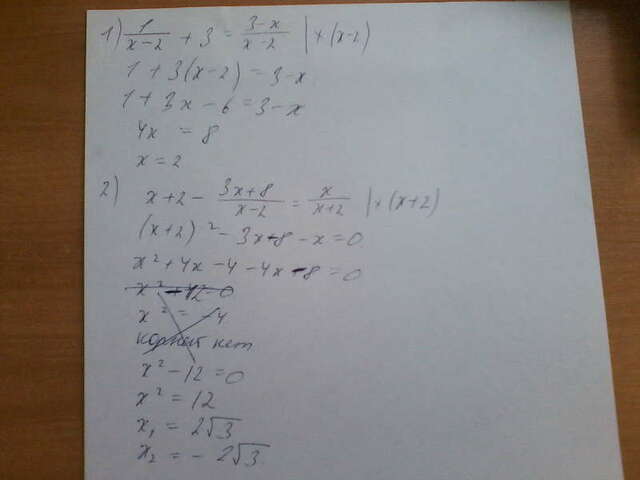 1) 1/(x-2) + 3 = (3-x)/(x-2) | × (x-2)
1 + 3(x-2) = 3-x
1 + 3x - 6 = 3-x
4x = 8
x = 2
2) x+2 - (3x+8)/(x-2) = x/(x+2) | × (x+2)
(x+2)² - 3x-8 - x = 0
x² + 4x - 4 - 4x - 8 = 0
x² - 12 = 0
x² = -4
корней нет
x² - 12 = 0
x² = 12
x₁ = 2√3
x₂ = - 2√3